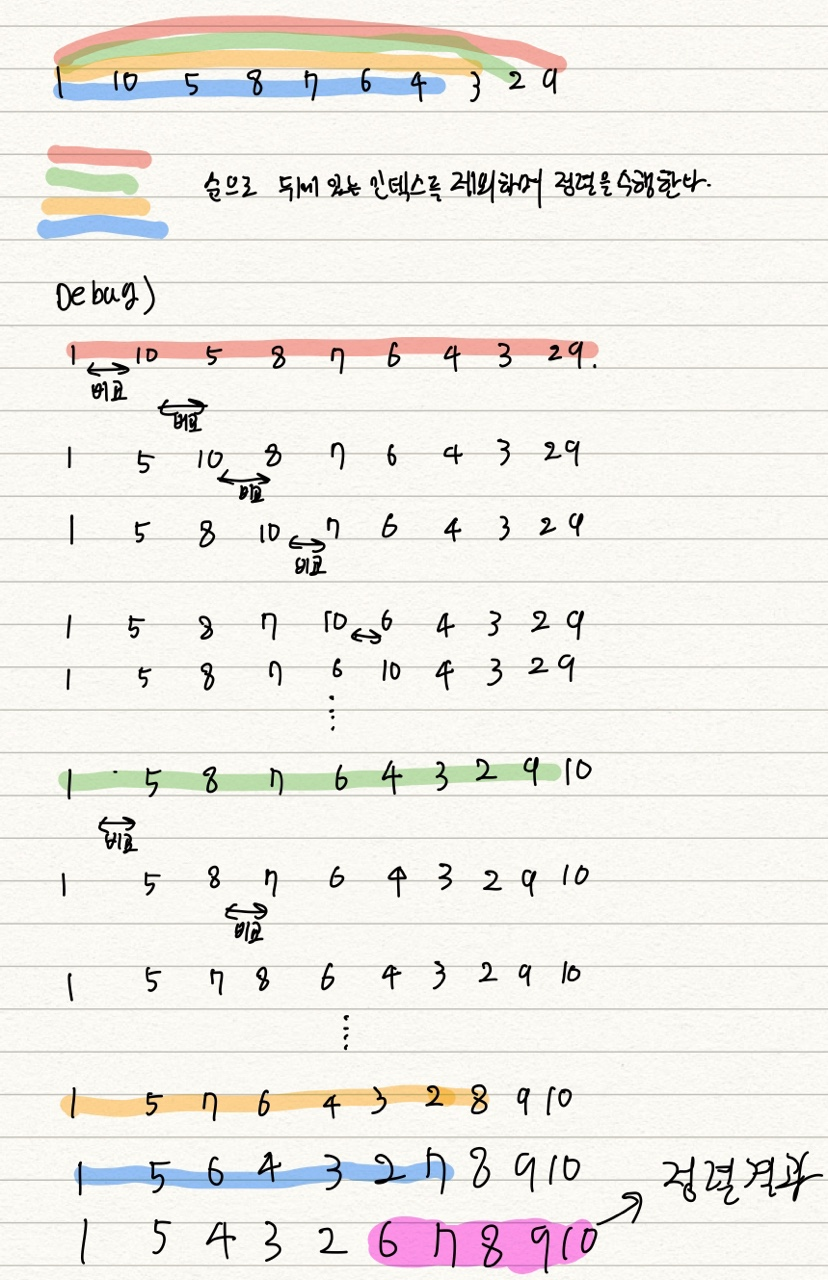 1 10 5 8 7 6 4 3 2 9
순으로 뒤에 있는 인덱스를 제외하며 정렬을 수행한다.
Debug)
1 10 5 8 7 6 4 3 2 9.
비교
비교
1 5 10 8 7 6 4 3 2 9
비교
1 5 8 10 7 6 4 3 2 9
비교
1 5 8 7 10 6 4 3 2 9
1 5 8 7 6 10 4 3 2 9
⋮
1 5 8 7 6 4 3 2 9 10
비교
1 5 8 7 6 4 3 2 9 10
비교
1 5 7 8 6 4 3 2 9 10
⋮
1 5 7 6 4 3 2 8 9 10
1 5 6 4 3 2 7 8 9 10 정렬결과
1 5 4 3 2 6 7 8 9 10